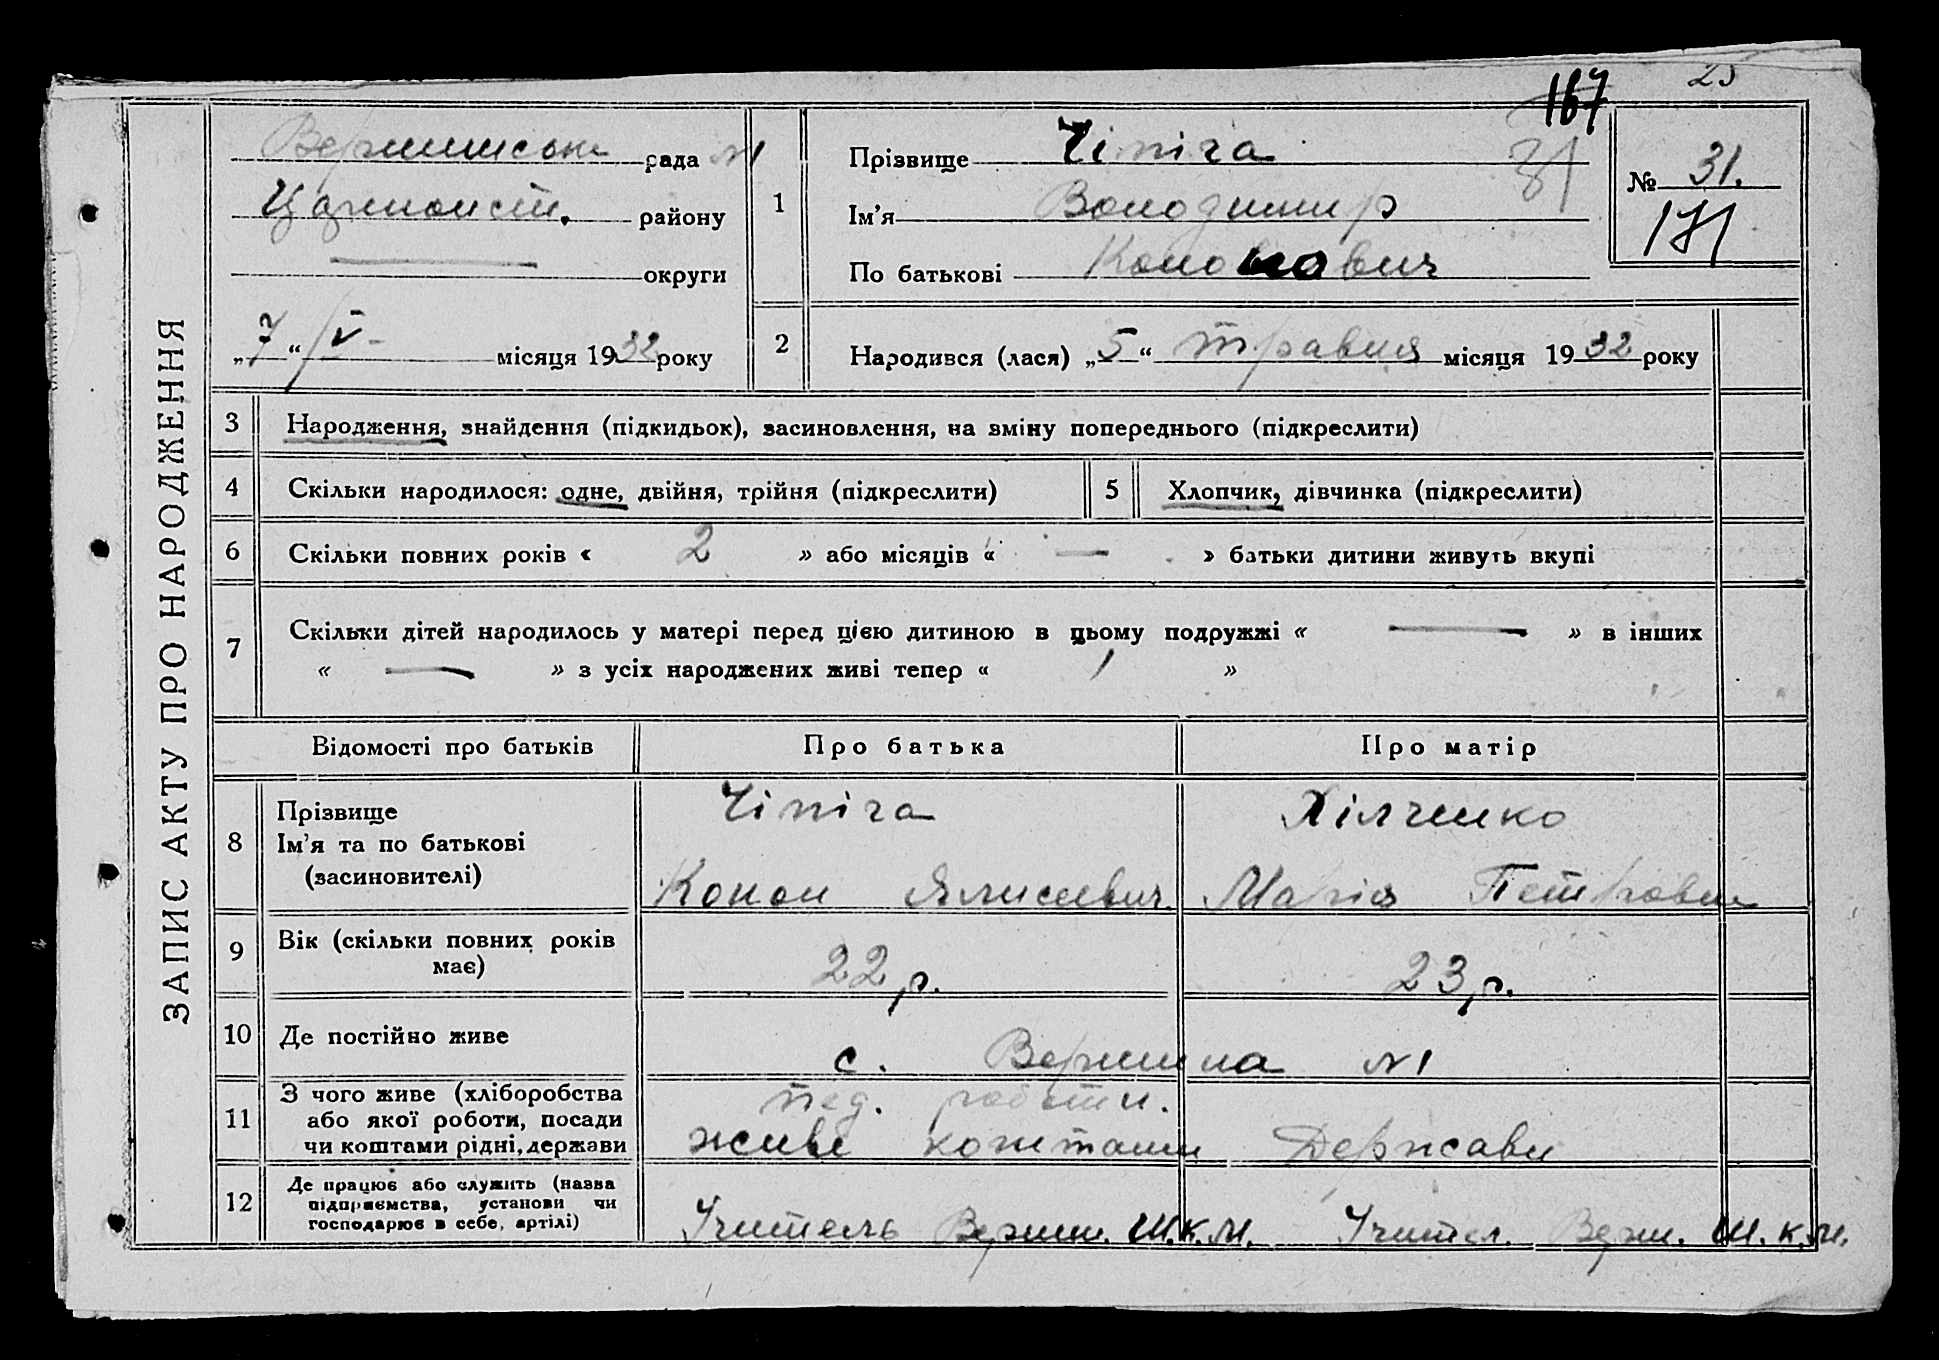 167 25
ЗАПИС АКТУ ПРО НАРОДЖЕННЯ
рада №1
району
— округи
„7“ /V - місяця 1932 року
1
Прізвище Чіпіга
Ім'я Володимир
По батькові Кононович
31
№ 31.
181
2
Народився (лася) „5“ травня місяця 1932 року
3 Народження, знайдення (підкидьок), засиновлення, на зміну попереднього (підкреслити)
4 Скільки народилося: одне, двійня, трійня (підкреслити) 5 Хлопчик, дівчинка (підкреслити)
6 Скільки повних років « 2 » або місяців « — » батьки дитини живуть вкупі
7 Скільки дітей народилось у матері перед цією дитиною в цьому подружжі « — » в інших
« — » з усіх народжених живі тепер « 1 »
Відомості про батьків Про батька Про матір
8 Прізвище Чіпіга Хілченко
Ім'я та по батькові
(засиновителі) Конон Марія Петровна
9 Вік (скільки повних років має) 22 р. 23 р.
10 Де постійно живе с. Вершина №1
11 З чого живе (хліборобства або якої роботи, посади чи коштами рідні, держави
пед. роботи.
живе коштами Держави
12 Де працює або служить (назва підприємства, установи чи господарює в себе, артілі)
Учитель Верши. Ш.К.М. Учител. Верш. Ш.К.М.